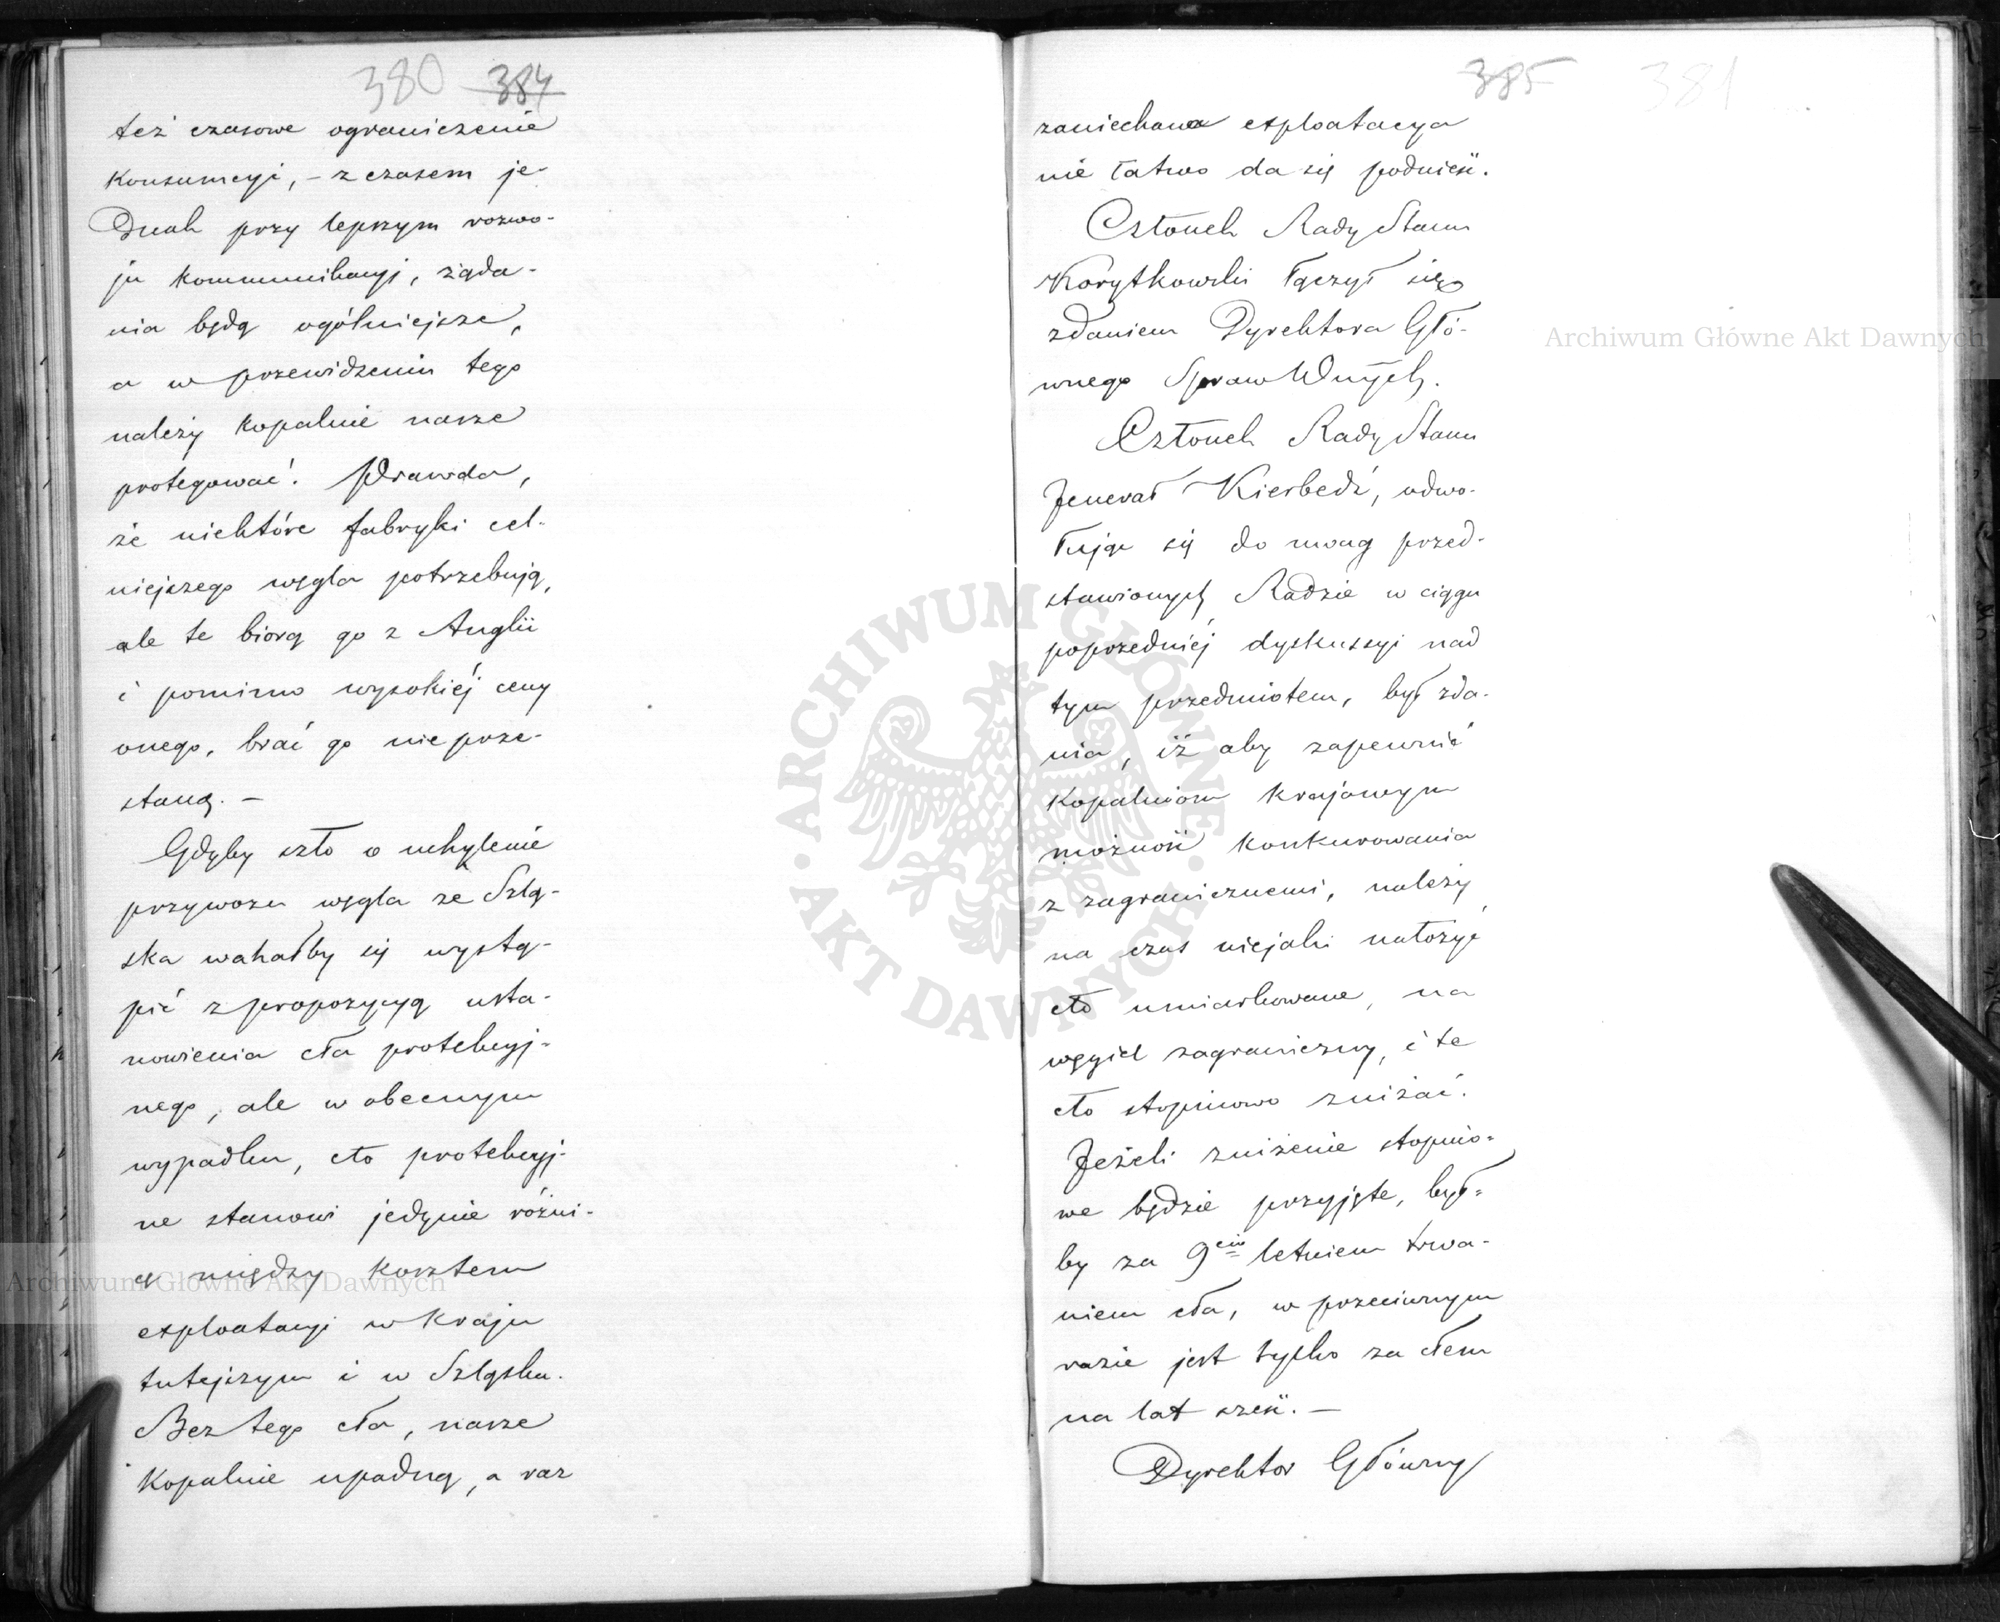 380 384
też czasowe ograniczenie
Konsumcyi, – z czasem je-
dnak przy lepszym rozwo-
ju Kommunikacyj, żąda-
nia będą ogólniejsze,
a w przewidzeniu tego
należy kopalnie nasze
protegować. Prawda,
że niektóre fabryki cel-
niejszego węgla potrzebują,
ale te biorą go z Anglii
i pomimo wysokiéj ceny
onego, brać go nie prze-
staną. –
Gdyby szło o uchylenie
przywozu węgla ze Szlą-
ska wahałby się wystą-
pić z propozycyą usta-
nowienia cła protekcyj-
nego, ale w obecnym
wypadku, cło protekcyj-
ne stanowi jedynie różni-
cę między kosztem
exploatacyi w Kraju
tutejszym i w Szląsku.
Bez tego cła, nasze
Kopalnie upadną, a raz
385 381
zaniechana exploatacya
nie łatwo da się podnieść.
Członek Rady Stanu
Korytkowski łączył się ze
zdaniem Dyrektora Głó-
wnego Spraw Wnych.
Członek Rady Stanu
Jenerał Kierbedź, odwo-
łując się do uwag przed-
stawionych Radzie w ciągu
poprzedniéj dyskussyi nad
tym przedmiotem, był zda-
nia, iż aby zapewnić
Kopalniom Krajowym
możność konkurowania
z zagranicznemi, należy
na czas niejaki nałożyć
cło umiarkowane, na
węgiel zagraniczny, i te
cło stopniowo zniżać.
Jeżeli zniżenie stopnio-
we będzie przyjęte, był-
by za 9cio letniem trwa-
niem cła, w przeciwnym
razie jest tylko za cłem
na lat sześć. –
Dyrektor Główny
Archiwum Główne Akt Dawnych
Archiwum Główne Akt Dawnych
ARCHIWUM GŁÓWNE AKT DAWNYCH